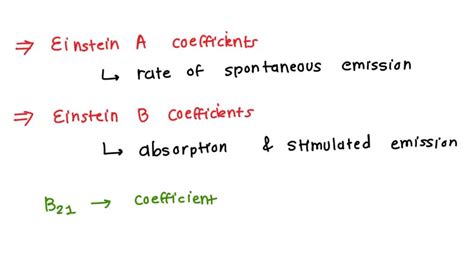 ⇒ Einstein A coefficients
↳ rate of spontaneous emission
⇒ Einstein B coefficients
↳ absorption & stimulated emission
B₂₁ → coefficient